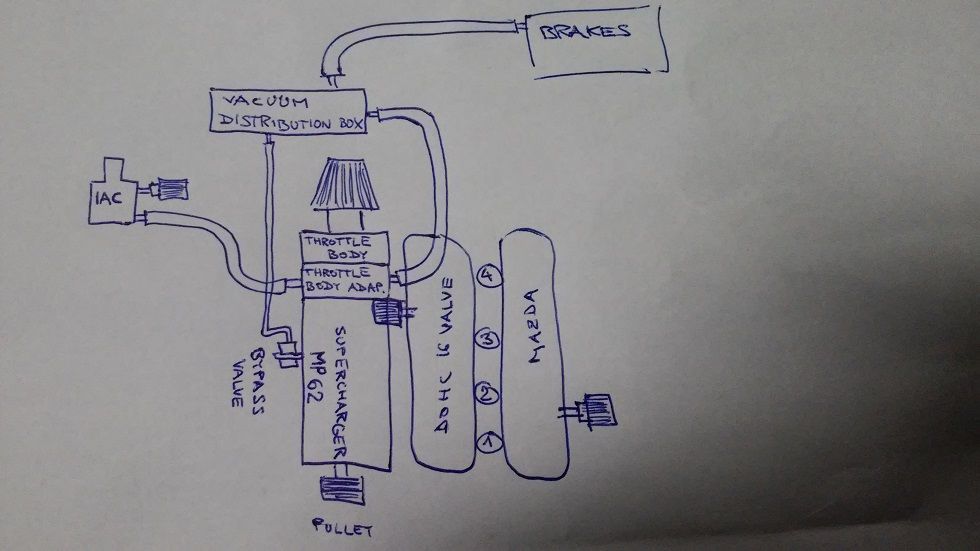 BRAKES
VACUUM
DISTRIBUTION BOX
IAC
THROTTLE
BODY
THROTTLE
BODY ADAP.
SUPERCHARGER
MP62
BYPASS
VALVE
DOHC 16 VALVE
4
3
2
1
MAZDA
PULLEY